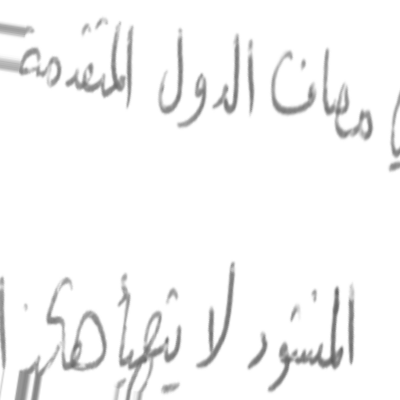 مصاف الدول المتقدمة
المنشود لا يتهيأ هكذا